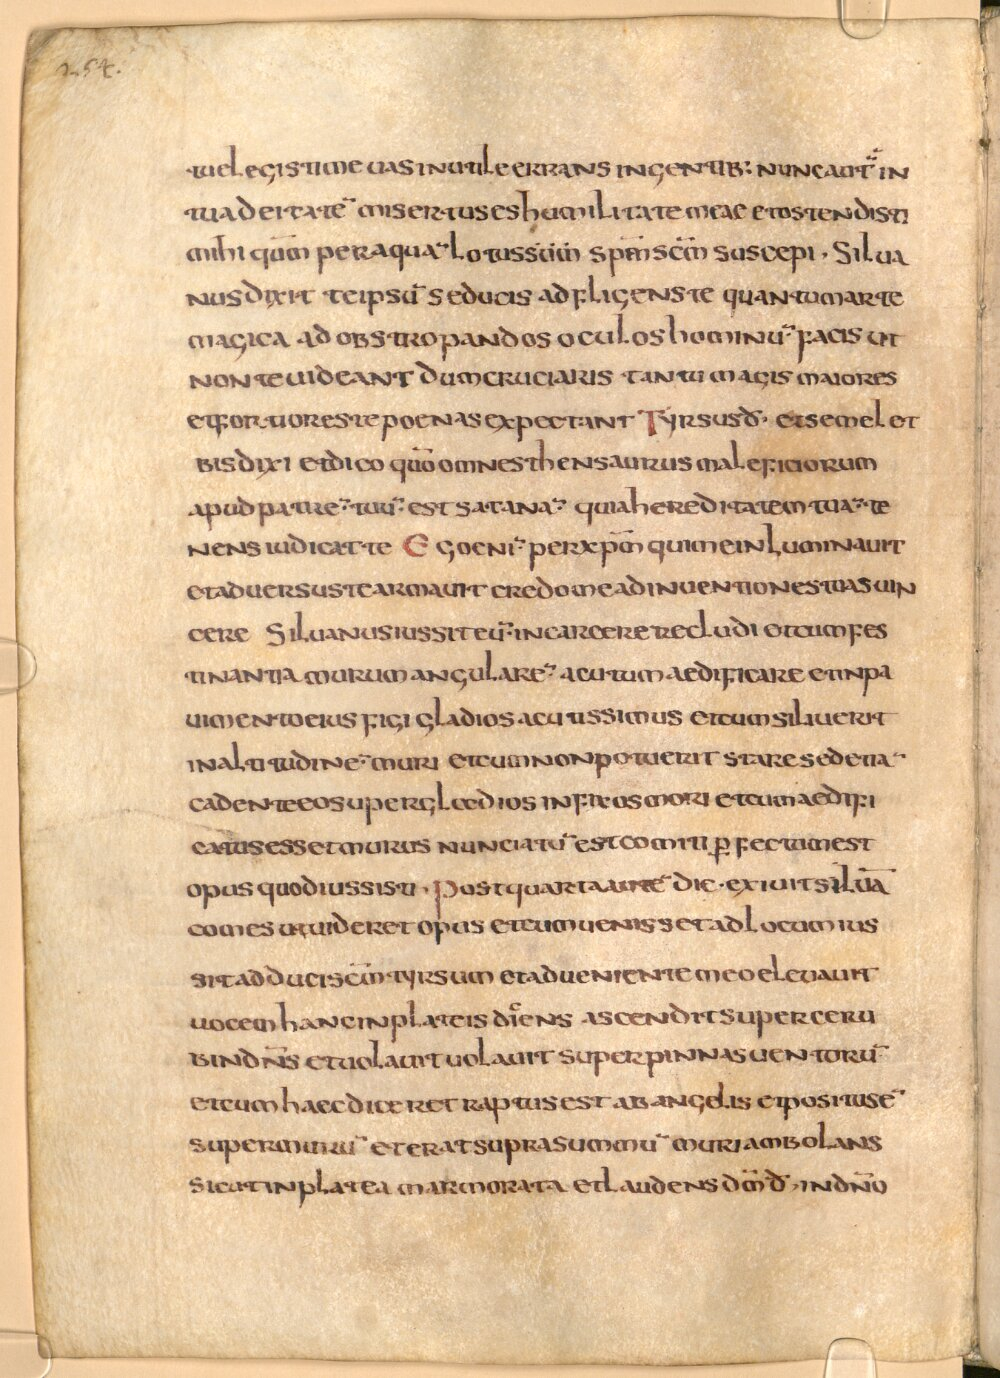 254.
tuelegistime uas inutile errans ingentib: nuncaut̄ in
tua deitatē misertus es humilitate meae etostendisti
mihi qūm peraqua᷈ lotussūm sp̄m sc̄m suscepi · Silua
nus dixit teipsū seducis adfligens te quantum arte
magica ad obstropandos oculos hominū facis ut
non te uideant dum cruciaris tantu magis maiores
etfortiores te poenas expectant Tyrsus d̄· etsemel et
bis dixi etdico quō omnes thensaurus maleficiorum
apud patrē tuū est satanā quia hereditatem tuā te
nens iudicat te Ego enī per xp̄m qui me inluminauit
etaduersus te armauit credo me adinuentiones tuas uin
cere Siluanus iussit eū in carcere recludi etcum fes
tinantia murum angularē acutum aedificare et in pa
uimento eius figi gladios acutissimus etcum siliuerit
in altitudinē muri etcum non potuerit stare sed etiā
cadente eo super gladios infixos mori etcum aedifi
catus esset murus nunciatū est comiti p̱fectum est
opus quod iussisti · Post quarta autē die · exiuit siluā
comes ut uideret opus etcum uenisset ad locum ius
sit adduci sc̄m tyrsum etadueniente meo eleuauit
uocem hanc in plateis dic̄ens ascendit super ceru
bin dn̄s etuolauit uolauit super pinnas uentorū
etcum haec diceret raptus est ab angelis etpositus ē
super murū et erat supra summū muri ambolans
sicut in platea marmorata etlaudens dm̄ d̄, in dn̄o